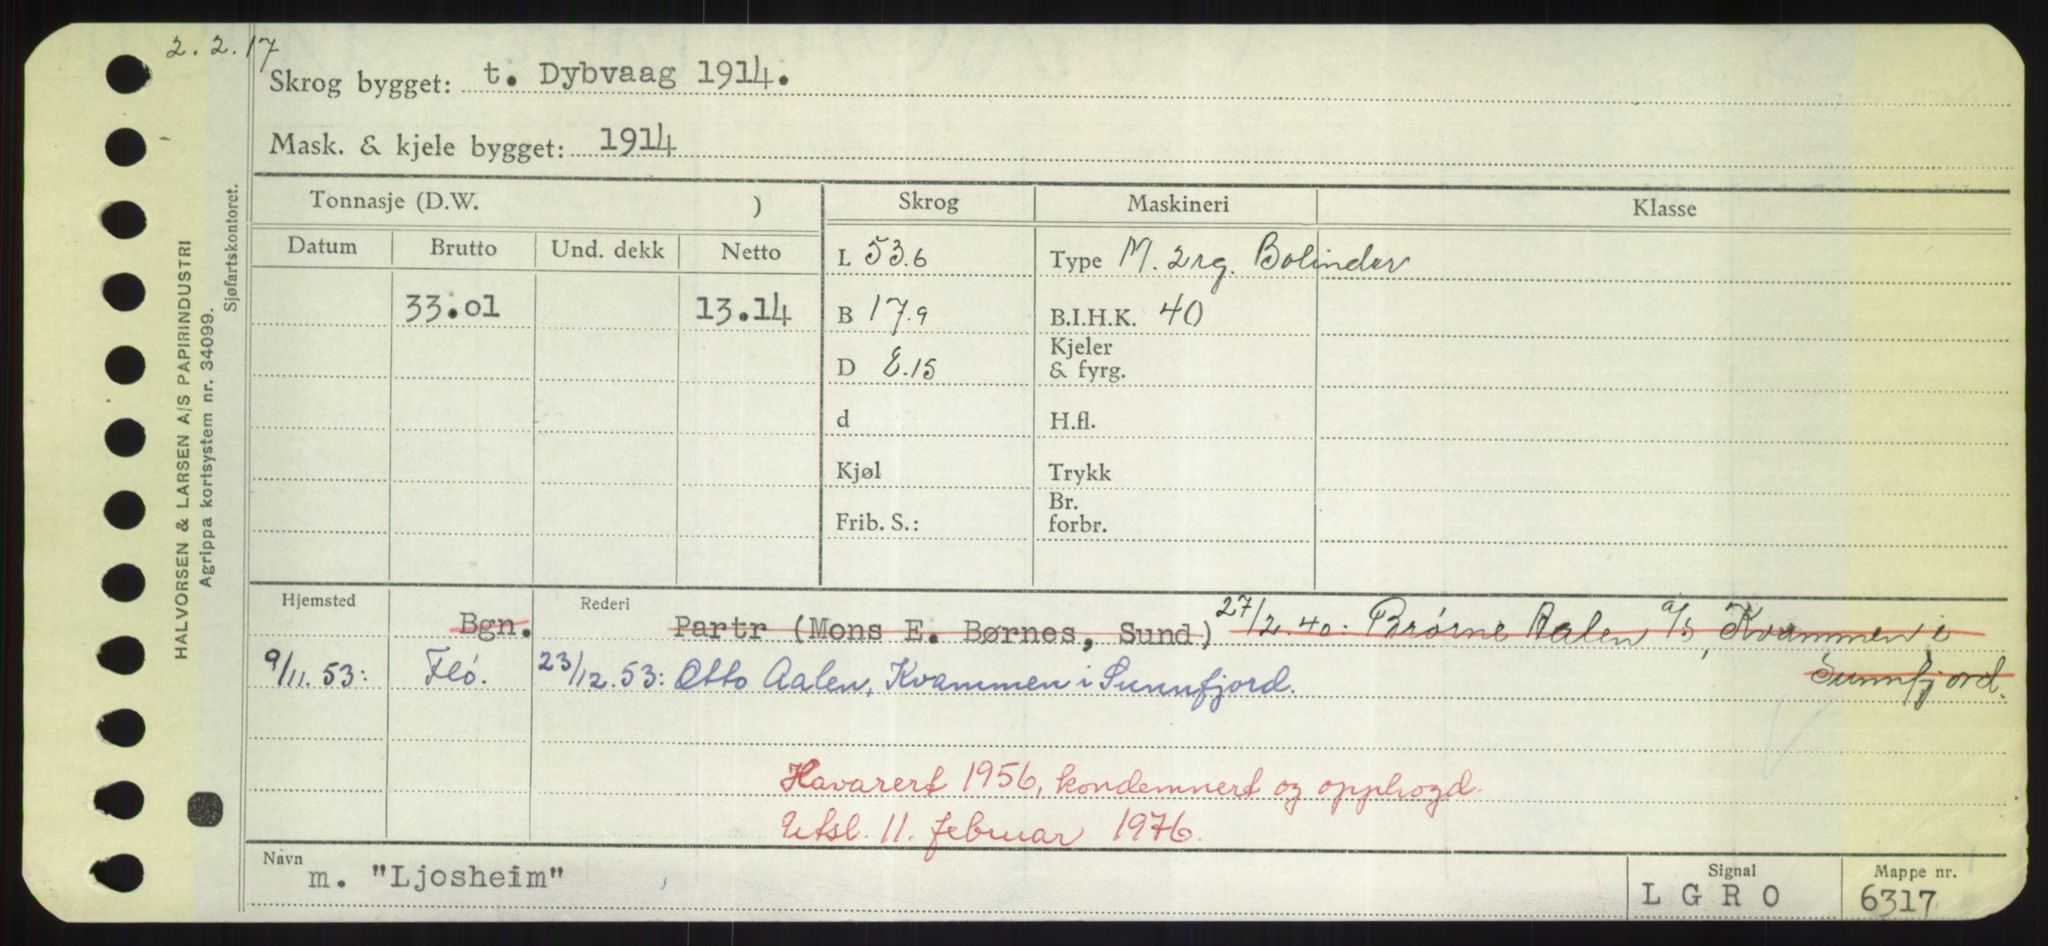 2. 2. 17
Skrog bygget: t. Dybvaag 1914.
Mask. & kjele bygget: 1914
Tonnasje (D.W. ) Skrog Maskineri Klasse
Datum Brutto Und. dekk Netto L 53.6 Type M. 2 Bolinder
33.01 13.14 B 17.9 B.I.H.K. 40
D 8.15 Kjeler
& fyrg.
d H.fl.
Kjøl Trykk
Frib. S.: Br.
forbr.
Hjemsted Rederi
Bgn. Partr (Mons E. Børnes, Sund) 27/2.40: Brørne Aalen a/s, Kvammen i
Sunnfjord.
9/11.53: Flø. 23/12.53: Otto Aalen, Kvammen i Sunnfjord.
Havarert 1956, kondemnert og opphogd.
Utsl. 11. februar 1976.
Navn m. "Ljosheim" Signal L G R O Mappe nr. 6317
HALVORSEN & LARSEN A/S PAPIRINDUSTRI
Agrippa kortsystem nr. 34099.
Sjøfartskontoret.